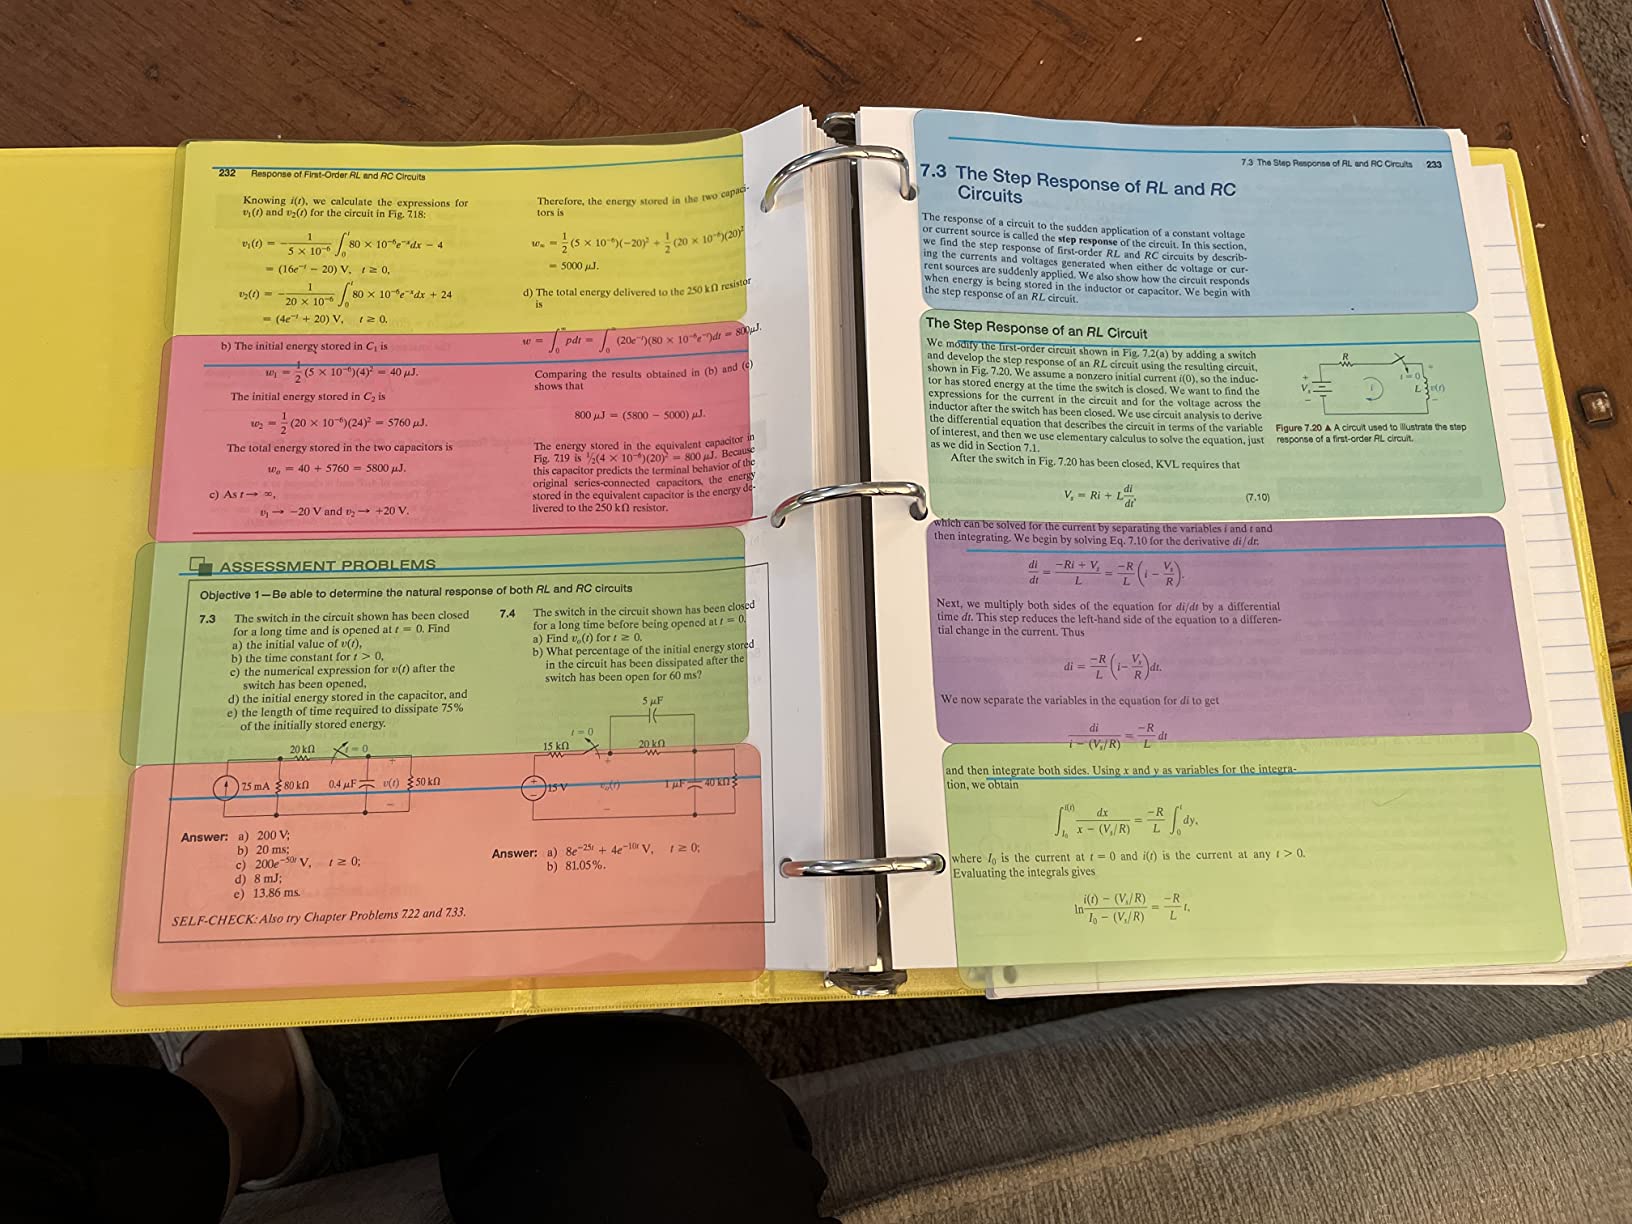 232 Response of First-Order RL and RC Circuits
Knowing i(t), we calculate the expressions for
v₁(t) and v₂(t) for the circuit in Fig. 7.18:
v₁(t) = −1/(5 × 10⁻⁶) ∫₀ᵗ 80 × 10⁻⁶e⁻ˣdx − 4
= (16e⁻ᵗ − 20) V, t ≥ 0,
v₂(t) = −1/(20 × 10⁻⁶) ∫₀ᵗ 80 × 10⁻⁶e⁻ˣdx + 24
= (4e⁻ᵗ + 20) V, t ≥ 0.
b) The initial energy stored in C₁ is
w₁ = 1/2 (5 × 10⁻⁶)(4)² = 40 μJ.
The initial energy stored in C₂ is
w₂ = 1/2 (20 × 10⁻⁶)(24)² = 5760 μJ.
The total energy stored in the two capacitors is
wₒ = 40 + 5760 = 5800 μJ.
c) As t → ∞,
v₁ → −20 V and v₂ → +20 V.
Therefore, the energy stored in the two capaci-
tors is
w∞ = 1/2 (5 × 10⁻⁶)(−20)² + 1/2 (20 × 10⁻⁶)(20)²
= 5000 μJ.
d) The total energy delivered to the 250 kΩ resistor
is
w = ∫₀^∞ pdt = ∫₀^∞ (20e⁻ᵗ)(80 × 10⁻⁶e⁻ᵗ)dt = 800 μJ.
Comparing the results obtained in (b) and (c)
shows that
800 μJ = (5800 − 5000) μJ.
The energy stored in the equivalent capacitor in
Fig. 7.19 is ½(4 × 10⁻⁶)(20)² = 800 μJ. Because
this capacitor predicts the terminal behavior of the
original series-connected capacitors, the energy
stored in the equivalent capacitor is the energy de-
livered to the 250 kΩ resistor.
ASSESSMENT PROBLEMS
Objective 1—Be able to determine the natural response of both RL and RC circuits
7.3 The switch in the circuit shown has been closed
for a long time and is opened at t = 0. Find
a) the initial value of v(t),
b) the time constant for t > 0,
c) the numerical expression for v(t) after the
switch has been opened,
d) the initial energy stored in the capacitor, and
e) the length of time required to dissipate 75%
of the initially stored energy.
20 kΩ t = 0
7.5 mA 80 kΩ 0.4 μF + v(t) − 50 kΩ
Answer: a) 200 V;
b) 20 ms;
c) 200e⁻⁵⁰ᵗ V, t ≥ 0;
d) 8 mJ;
e) 13.86 ms.
7.4 The switch in the circuit shown has been closed
for a long time before being opened at t = 0.
a) Find vₒ(t) for t ≥ 0.
b) What percentage of the initial energy stored
in the circuit has been dissipated after the
switch has been open for 60 ms?
5 μF
15 kΩ t = 0 20 kΩ
15 V + vₒ(t) − 1 μF 40 kΩ
Answer: a) 8e⁻²⁵ᵗ + 4e⁻¹⁰ᵗ V, t ≥ 0;
b) 81.05%.
SELF-CHECK: Also try Chapter Problems 7.22 and 7.33.
7.3 The Step Response of RL and RC Circuits 233
7.3 The Step Response of RL and RC
Circuits
The response of a circuit to the sudden application of a constant voltage
or current source is called the step response of the circuit. In this section,
we find the step response of first-order RL and RC circuits by describ-
ing the currents and voltages generated when either dc voltage or cur-
rent sources are suddenly applied. We also show how the circuit responds
when energy is being stored in the inductor or capacitor. We begin with
the step response of an RL circuit.
The Step Response of an RL Circuit
We modify the first-order circuit shown in Fig. 7.2(a) by adding a switch
and develop the step response of an RL circuit using the resulting circuit,
shown in Fig. 7.20. We assume a nonzero initial current i(0), so the induc-
tor has stored energy at the time the switch is closed. We want to find the
expressions for the current in the circuit and for the voltage across the
inductor after the switch has been closed. We use circuit analysis to derive
the differential equation that describes the circuit in terms of the variable
of interest, and then we use elementary calculus to solve the equation, just
as we did in Section 7.1.
After the switch in Fig. 7.20 has been closed, KVL requires that
R
t = 0
Vₛ + − i L + v(t) −
Figure 7.20 ▲ A circuit used to illustrate the step
response of a first-order RL circuit.
Vₛ = Ri + L di/dt, (7.10)
which can be solved for the current by separating the variables i and t and
then integrating. We begin by solving Eq. 7.10 for the derivative di/dt:
di/dt = (−Ri + Vₛ)/L = −R/L (i − Vₛ/R).
Next, we multiply both sides of the equation for di/dt by a differential
time dt. This step reduces the left-hand side of the equation to a differen-
tial change in the current. Thus
di = −R/L (i − Vₛ/R)dt.
We now separate the variables in the equation for di to get
di/(i − (Vₛ/R)) = −R/L dt
and then integrate both sides. Using x and y as variables for the integra-
tion, we obtain
∫_{I₀}^{i(t)} dx/(x − (Vₛ/R)) = −R/L ∫₀ᵗ dy,
where I₀ is the current at t = 0 and i(t) is the current at any t > 0.
Evaluating the integrals gives
ln (i(t) − (Vₛ/R))/(I₀ − (Vₛ/R)) = −R/L t,